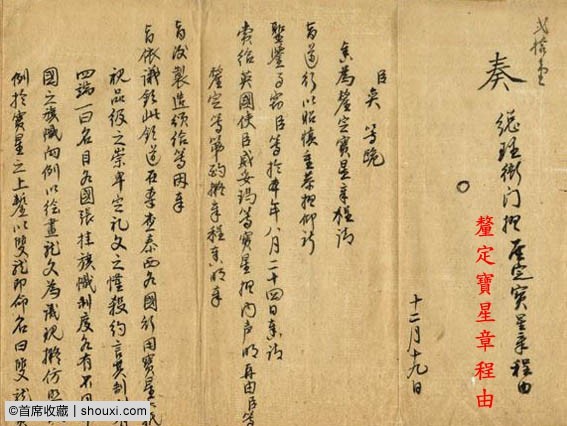 奏
總理衙門摺 厘定寶星章程由
釐定寶星章程由
十二月十九日
臣奕 等跪
奏為釐定寶星章程請
旨遵行以昭慎重恭摺仰祈
聖鑒事竊臣等於本年八月二十四日奏請
賞給英國使臣威妥瑪等寶星摺內声明再由臣等
釐定等第酌擬章程奏明奉
旨後製造頒給等因奉
旨依議欽此欽遵在案查泰西各國所用寶星
視品級之崇卑定礼文之隆殺約言其制
四端一曰名目各國張挂旗幟制度各有不同
國之旗幟向例以繪畫龍文為識現擬仿照
例於寶星之上鏨以雙龍即命名曰雙龍
@首席收藏 | shouxi.com